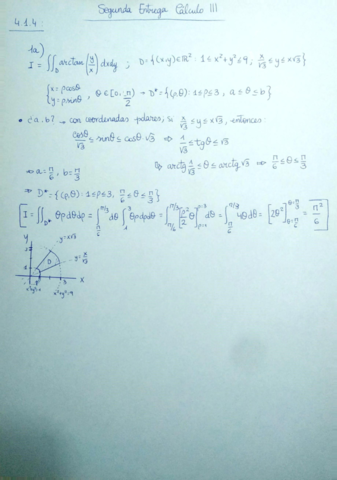 Segunda Entrega Cálculo III
4.1.4:
1a)
I = ∬_D arctan(y/x) dxdy ; D = {(x,y)∈ℝ² : 1 ≤ x²+y² ≤ 9, x/√3 ≤ y ≤ x√3}
{x = ρcosθ
y = ρsinθ , θ ∈ [0, π/2] → D* = {(ρ,θ) : 1 ≤ ρ ≤ 3, a ≤ θ ≤ b}
• ¿a, b? → con coordenadas polares, si x/√3 ≤ y ≤ x√3, entonces:
cosθ/√3 ≤ senθ ≤ cosθ·√3 ⇒ 1/√3 ≤ tgθ ≤ √3
⇒ arctg 1/√3 ≤ θ ≤ arctg √3 ⇒ π/6 ≤ θ ≤ π/3
⇒ a = π/6, b = π/3
⇒ D* = {(ρ,θ) : 1 ≤ ρ ≤ 3, π/6 ≤ θ ≤ π/3}
[I = ∬_D* θρ dθdρ = ∫_{π/6}^{π/3} dθ ∫_1^3 θρdρ = ∫_{π/6}^{π/3} [ρ²/2 θ]_{ρ=1}^{ρ=3} dθ = ∫_{π/6}^{π/3} 4θdθ = [2θ²]_{θ=π/6}^{θ=π/3} = π²/6]
y
y = x√3
D
y = x/√3
x
x²+y²=1
x²+y²=9